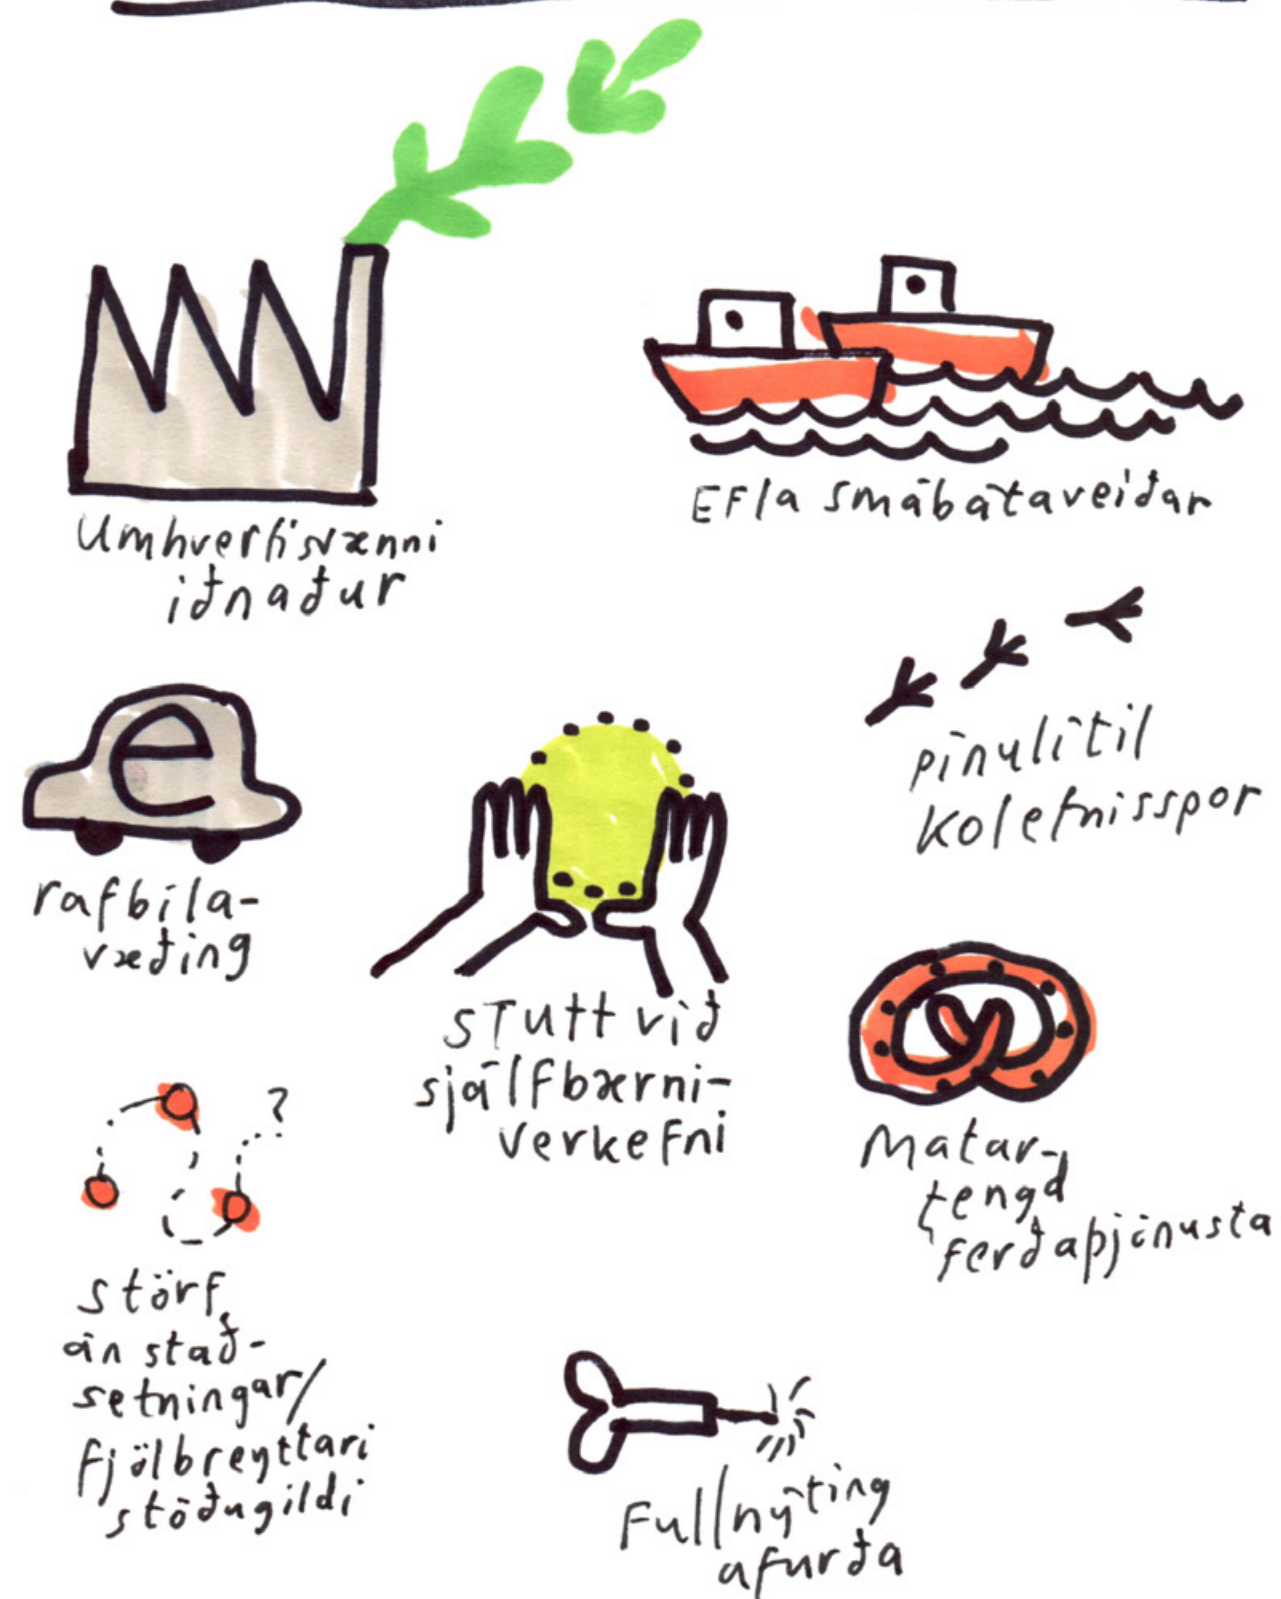 Umhverfisvænni
iðnaður
Efla smábátaveiðar
pínulítil
kolefnisspor
e
rafbíla-
væðing
stutt við
sjálfbærni-
verkefni
Matar-
tengd
ferðaþjónusta
?
störf
án stað-
setningar/
fjölbreyttari
stöðugildi
Fullnýting
afurða